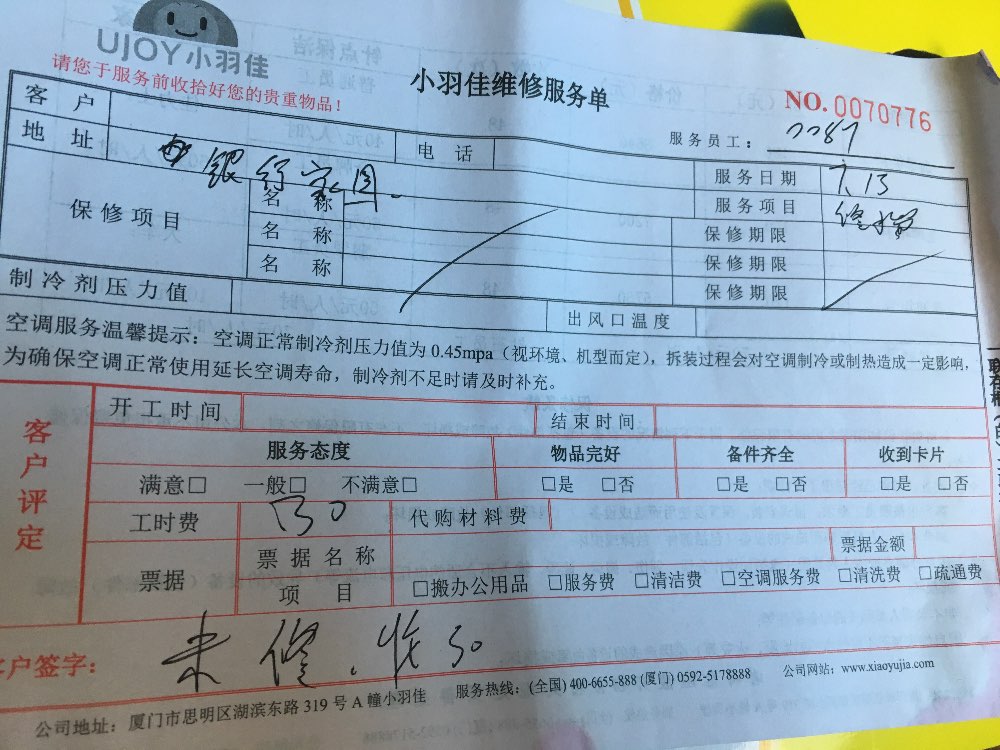 UJOY小羽佳
请您于服务前收拾好您的贵重物品！
小羽佳维修服务单
NO.0070776
服务员工：
客户
电话
地址
银行家园.
服务日期
7.13
保修项目
名称
服务项目
名称
保修期限
名称
保修期限
保修期限
制冷剂压力值
出风口温度
空调服务温馨提示：空调正常制冷剂压力值为 0.45mpa（视环境、机型而定），拆装过程会对空调制冷或制热造成一定影响，
为确保空调正常使用延长空调寿命，制冷剂不足时请及时补充。
客户评定
开工时间
结束时间
服务态度 物品完好 备件齐全 收到卡片
满意□ 一般□ 不满意□ □是 □否 □是 □否 □是 □否
工时费
代购材料费
票据
票据名称
票据金额
项目
□搬办公用品 □服务费 □清洁费 □空调服务费 □清洗费 □疏通费
客户签字：
未修.收50
公司地址：厦门市思明区湖滨东路 319 号 A 幢小羽佳 服务热线：(全国) 400-6655-888 (厦门) 0592-5178888 公司网站：www.xiaoyujia.com